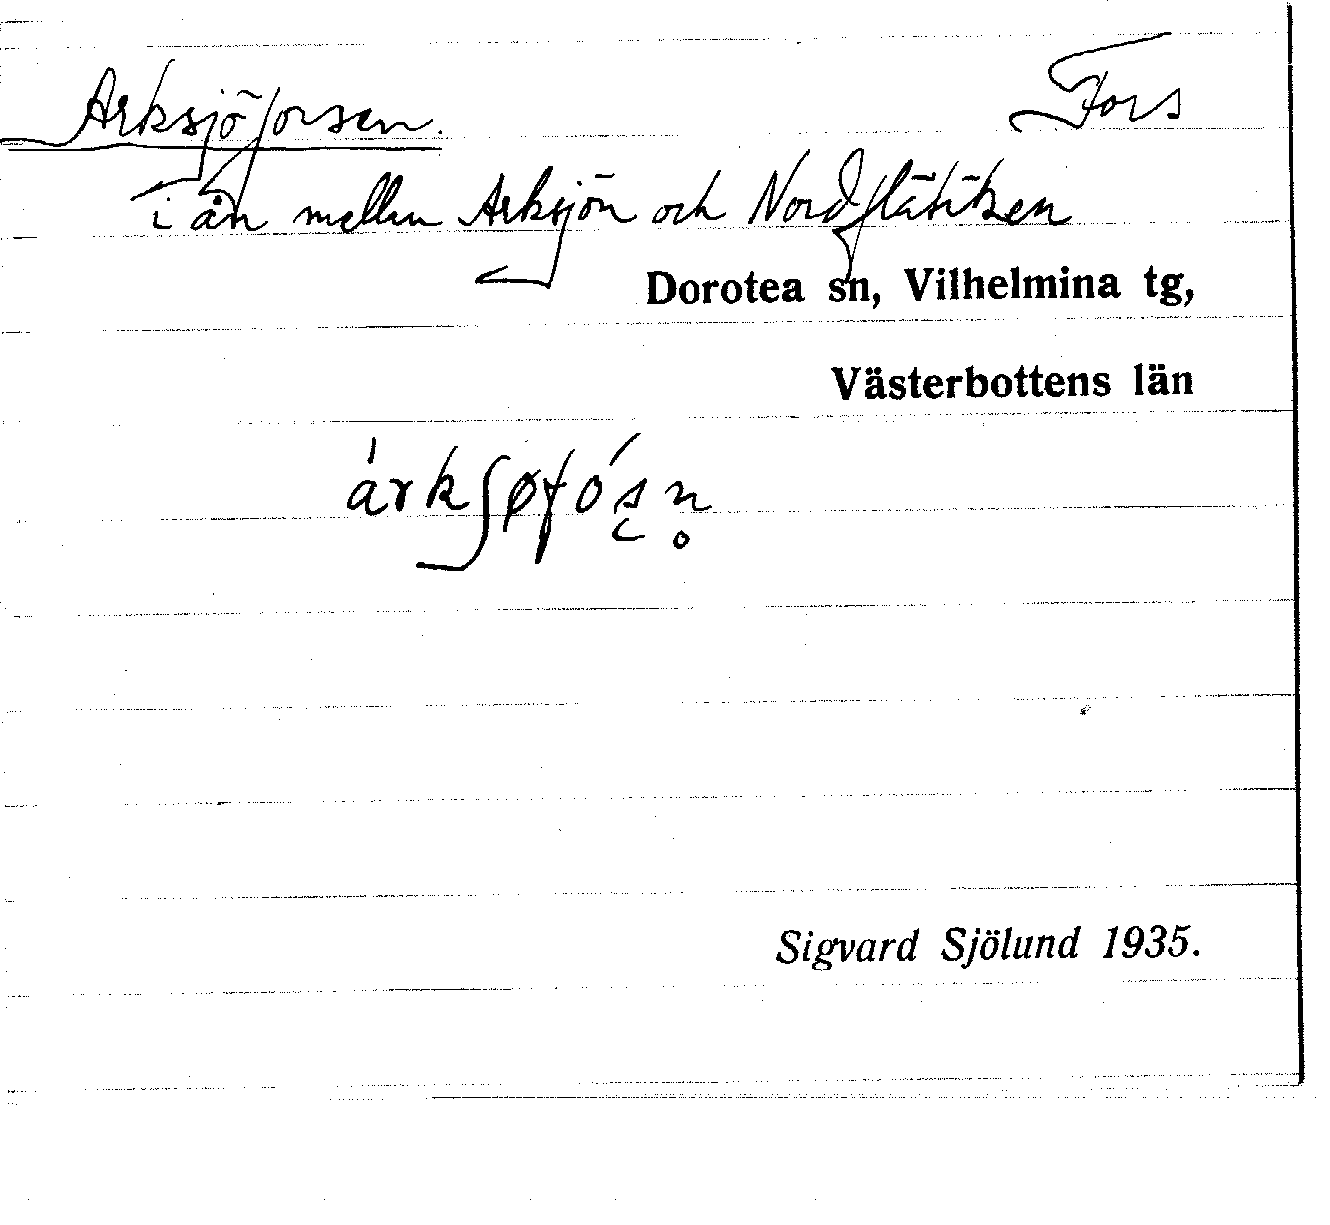 Arksjöforsen. Fors
i ån mellan Arksjön och Nordflätiken
Dorotea sn, Vilhelmina tg,
Västerbottens län
Sigvard Sjölund 1935.